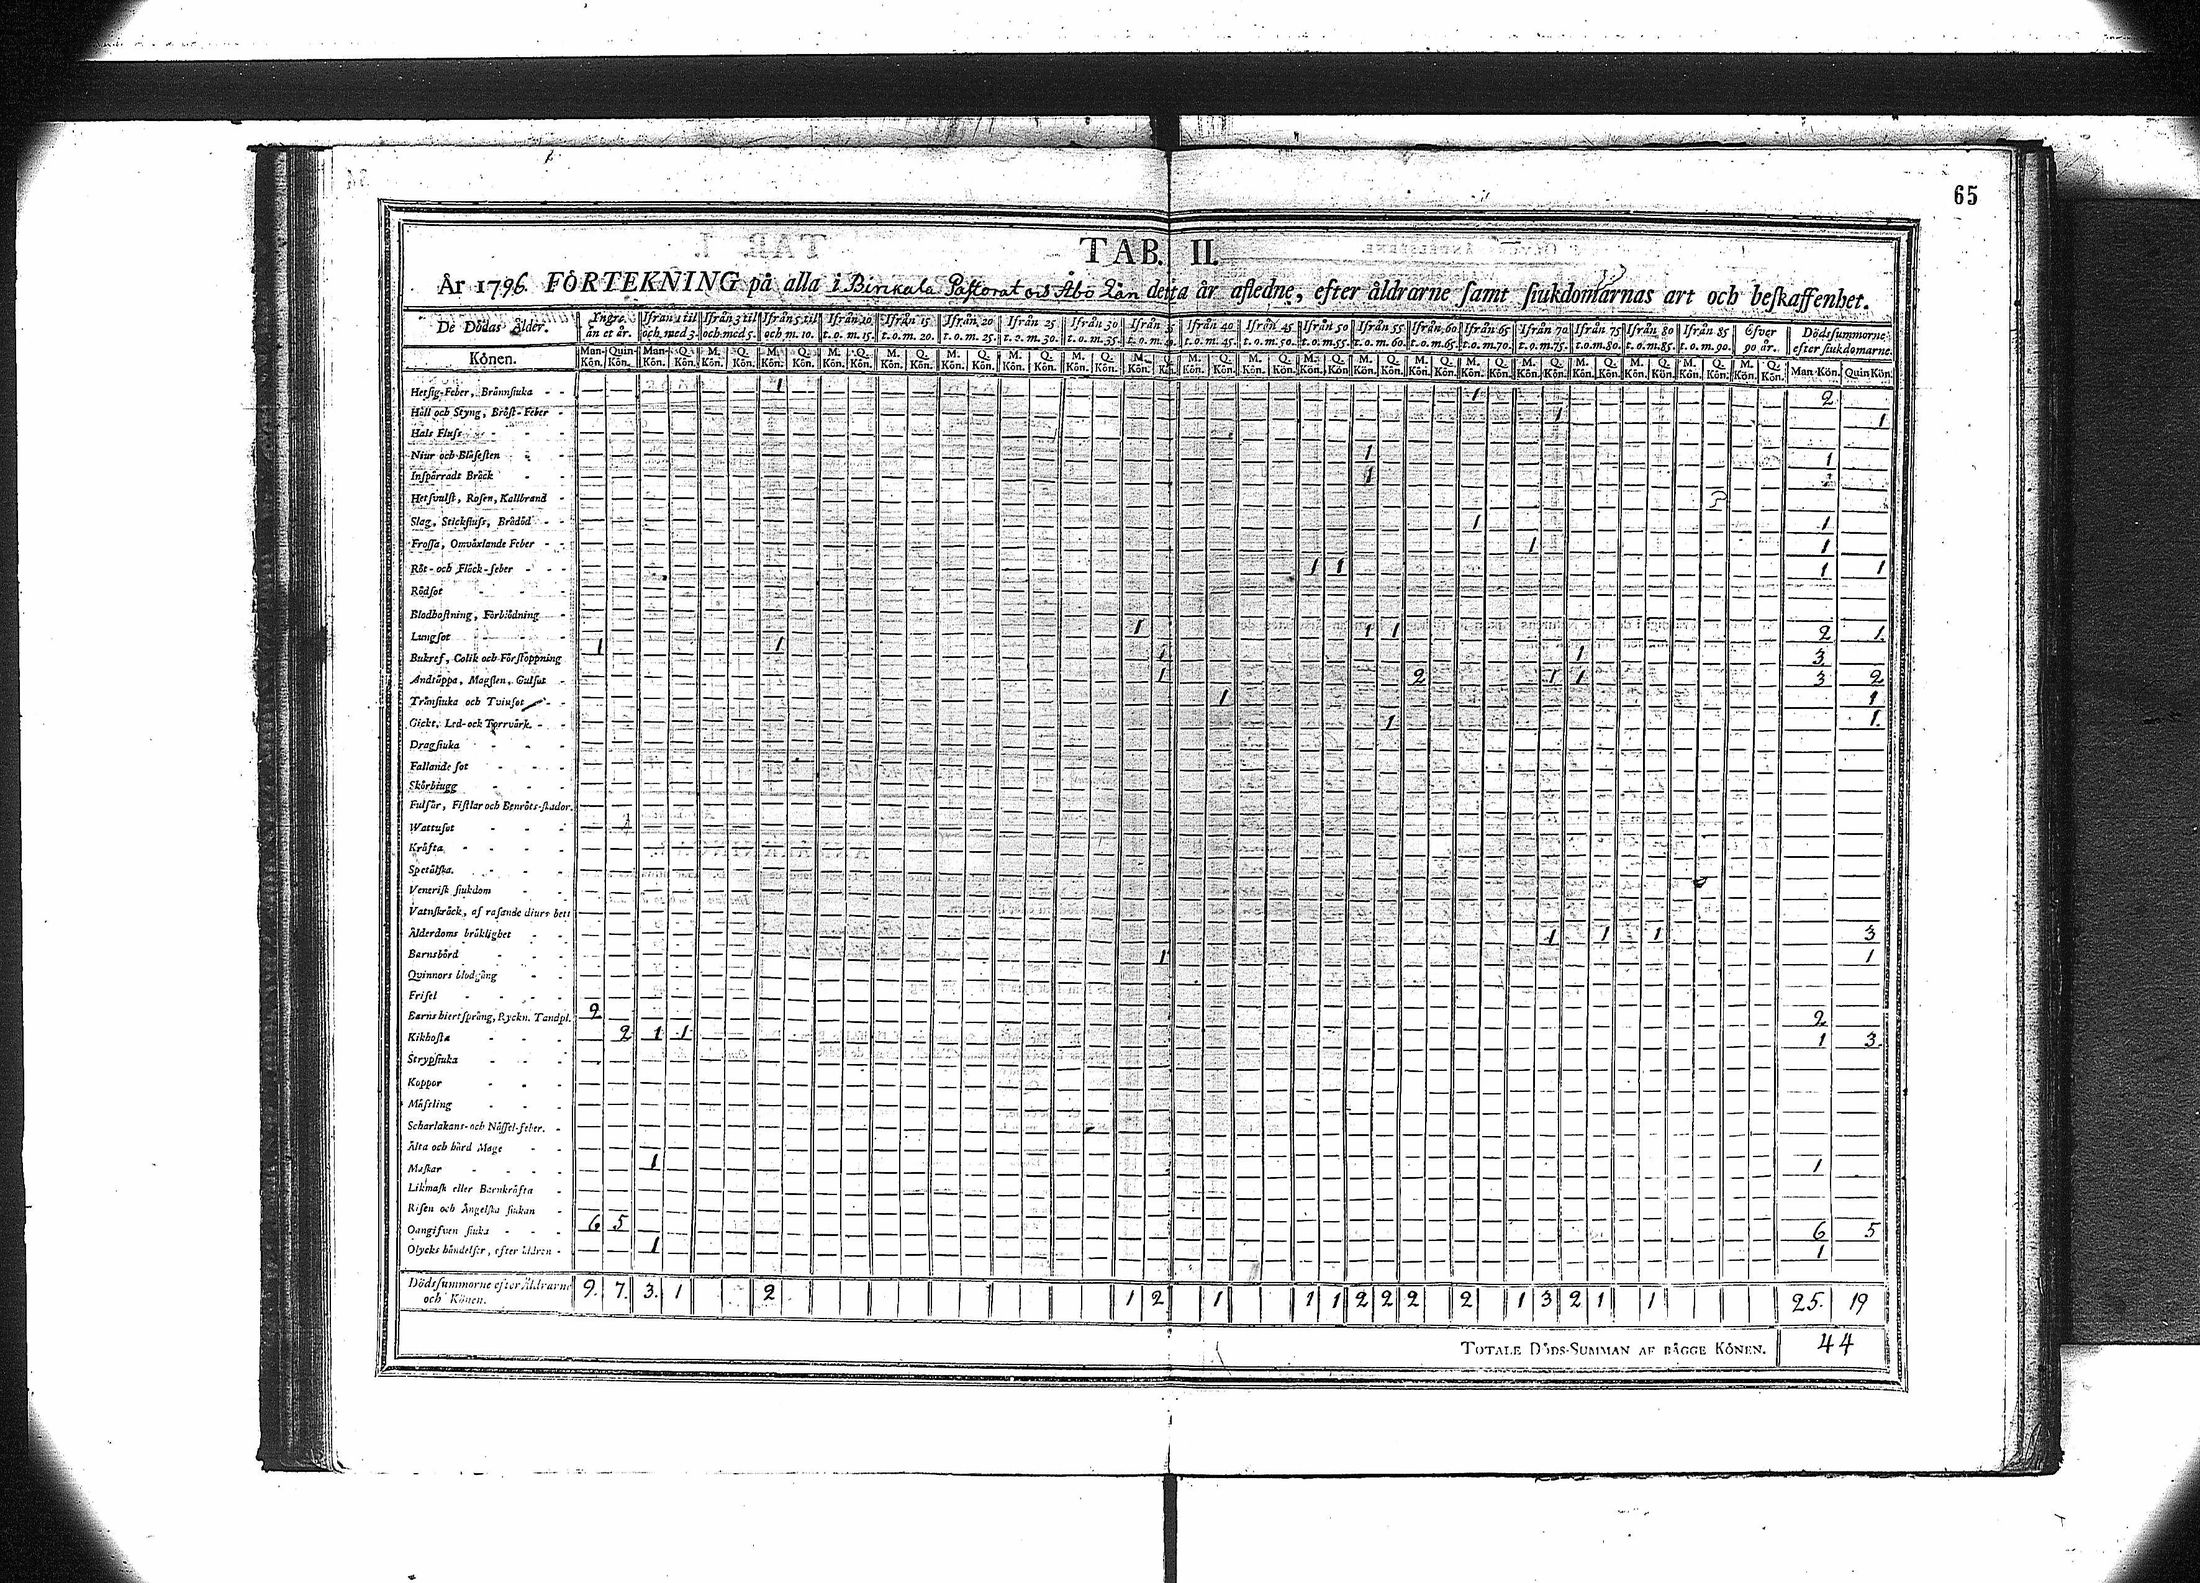 65
TAB. II.
År 1796. FÖRTEKNING på alla i Birikala Pastorat och Åbo Län detta år afledne, efter åldrarne samt siukdomarnas art och beskaffenhet.
De Dödas Ålder. Yngre än et år. Ifrån 1 til och med 3. Ifrån 3 til och med 5. Ifrån 5 til och m. 10. Ifrån 10 t. o. m. 15. Ifrån 15 t. o. m. 20. Ifrån 20 t. o. m. 25. Ifrån 25 t. o. m. 30. Ifrån 30 t. o. m. 35. Ifrån 35 t. o. m. 40 Ifrån 40 t. o. m. 45. Ifrån 45 t. o. m. 50. Ifrån 50 t. o. m. 55. Ifrån 55 t. o. m. 60. Ifrån 60 t. o. m. 65. Ifrån 65 t. o. m. 70. Ifrån 70 t. o. m. 75. Ifrån 75 t. o. m. 80. Ifrån 80 t. o. m. 85. Ifrån 85 t. o. m. 90. Öfver 90 år. Dödssummorne efter siukdomarne.
Könen. Man-Kön. Quin-Kön. Man-Kön. Q. Kön. M. Kön. Q. Kön. M. Kön. Q. Kön. M. Kön. Q. Kön. M. Kön. Q. Kön. M. Kön. Q. Kön. M. Kön. Q. Kön. M. Kön. Q. Kön. M. Kön. Q. Kön. M. Kön. Q. Kön. M. Kön. Q. Kön. M. Kön. Q. Kön. M. Kön. Q. Kön. M. Kön. Q. Kön. M. Kön. Q. Kön. M. Kön. Q. Kön. M. Kön. Q. Kön. M. Kön. Q. Kön. M. Kön. Q. Kön. M. Kön. Q. Kön. Man Kön. Quin Kön.
Hetsig-Feber, Brännsiuka 1 1 2
Håll och Styng, Bröst-Feber 1 1
Hals Fluss
Niur och Blåsesten 1 1
Inspärradt Bråck 1 1
Hetsvulst, Rosen, Kallbrand
Slag, Stickfluss, Brådöd 1 1
Frossa, Omväxlande Feber 1 1
Röt- och Fläck-feber 1 1 1 1
Rödsot
Blodhostning, Förblödning
Lungsot 1 1 1 2 1.
Bukref, Colik och Förstoppning 1 1 1 1 3
Andtäppa, Magsten, Gulsot 1 2 1 1 3 2
Trånsiuka och Tvinsot 1 1
Gickt, Led- ock Torrvärk 1 1.
Dragsiuka
Fallande sot
Skörbiugg
Fulsår, Fistlar och Benröts-skador.
Wattusot
Kräfta
Spetälska.
Venerisk siukdom
Vatnskräck, af rasande diurs bett
Ålderdoms bräklighet 1 1 1 3
Barnsbörd 1 1
Qvinnors blodgång
Frisel
Barns hiertsprång, Ryckn. Tandpl. 2 2
Kikhosta 2 1 1 1 3.
Strypsiuka
Koppor
Mässling
Scharlakans- och Nässel-feber.
Älta och hård Mage
Maskar 1 1
Likmask eller Barnkräfta
Risen och Ängelska siukan
Oangifven siuka 6 5 6 5
Olycks händelser, efter åldren 1 1
Dödssummorne efter Åldrarne och Könen. 9. 7. 3. 1 2 1 2 1 1 1 2 2 2 2 1 3 2 1 1 25. 19
TOTALE DÖDS-SUMMAN AF BÄGGE KÖNEN. 44